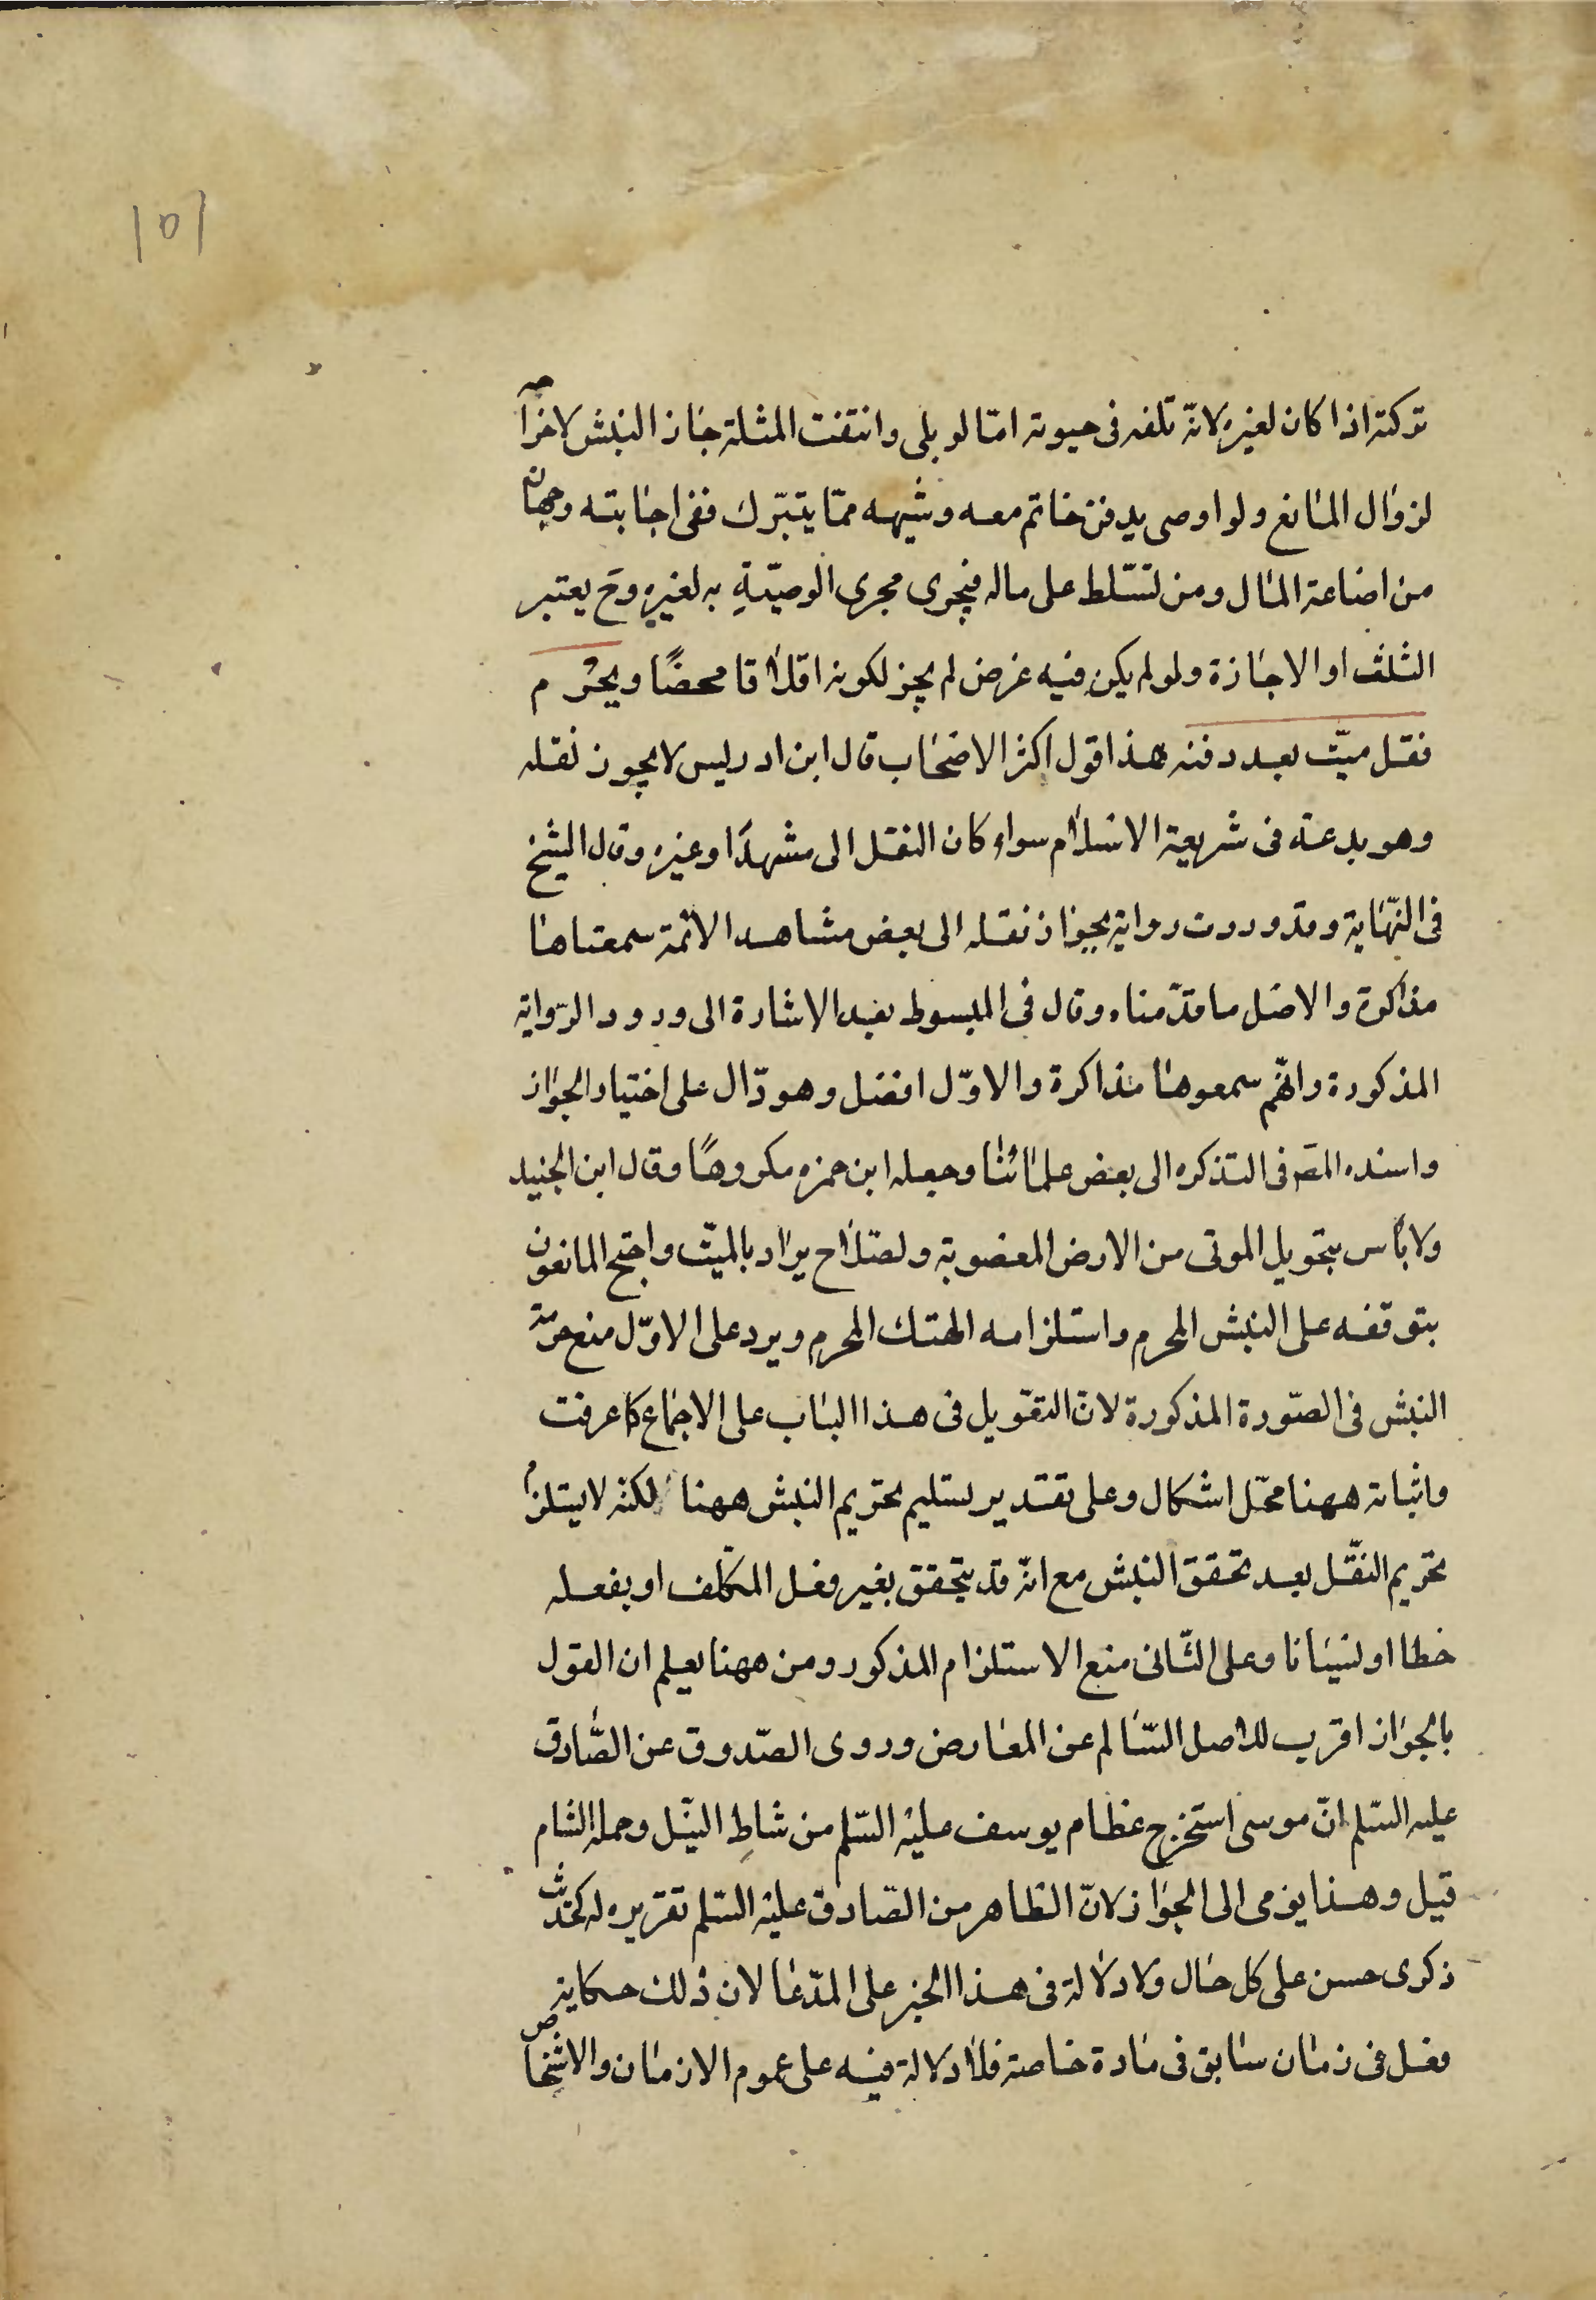 ١٥١
تركته اذا كان لغيره لانّه تلفه فى حيوته امّا لو بلى وانتفت المثلة جاز النبش لاخراجه
لزوال المانع ولو اوصى بدفن خاتم معه وشبهه ممّا يتبرّك ففى اجابته وجهان
من اضاعة المال ومن تسّلط على ماله فيجرى مجرى الوصيّةِ به لغيره وح يعتبر
الثلث او الاجازة ولو لم يكن فيه غرض لم يجز لكونه اتلافا محضًا ويحرم
نقل ميّت بعد دفنه هذا قول اكثر الاصحاب قال ابن ادريس لا يجوز نقله
وهو بدعة فى شريعة الاسلام سواء كان النقل الى مشهد او غيره وقال الشيخ
فى النّهاية وقد وردت رواية بجواز نقله الى بعض مشاهد الائمة سمعناها
مذاكرة والاصل ما قدّمناه وقال فى المبسوط بعد الاشارة الى ورود الرّواية
المذكورة وانّهم سمعوها مذاكرة والاوّل افضل وهو دّال على اختيار الجواز
واسنده المصّ فى التذكره الى بعض علمائنا وجعله ابن حمزه مكروهًا وقال ابن الجنيد
ولا بأس بتحويل الموتى من الارض المغصوبة ولصلاح يراد بالميّت واحتج المانعون
بتوقفه على النبش المحرم واستلزامه الهتك المحرم ويرد على الاوّل منع حرمة
النبش فى الصّورة المذكورة لانّ التعّويل فى هذا الباب على الاجماع كما عرفت
واثباته ههنا محّل اشكال وعلى تقدير تسليم تحريم النبش ههنا لكنّه لا يستلزم
تحريم النقّل بعد تحقق النبش مع انّه قد يتحقق بغير فعل المكلّف او بفعله
خطا او نسيانا وعلى الثّانى منع الاستلزام المذكور ومن ههنا يعلم ان القول
بالجواز اقرب للاصل السّالم عن المعارض وروى الصّدوق عن الصّادق
عليه السّلم انّ موسى استخرج عظام يوسف عليه السّلم من شاطِ النّيل وحمله الشام
قيل وهذا يومى الى الجواز لانّ الظاهر من الصّادق عليه السّلم تقريره له كحديث
ذكرى حسن على كل حال ولا دلالة فى هذا الخبر على المدّعا لان ذلك حكاية
فعل فى زمان سابق فى مادة خاصة فلا دلالة فيه على عموم الازمان والاشخاص